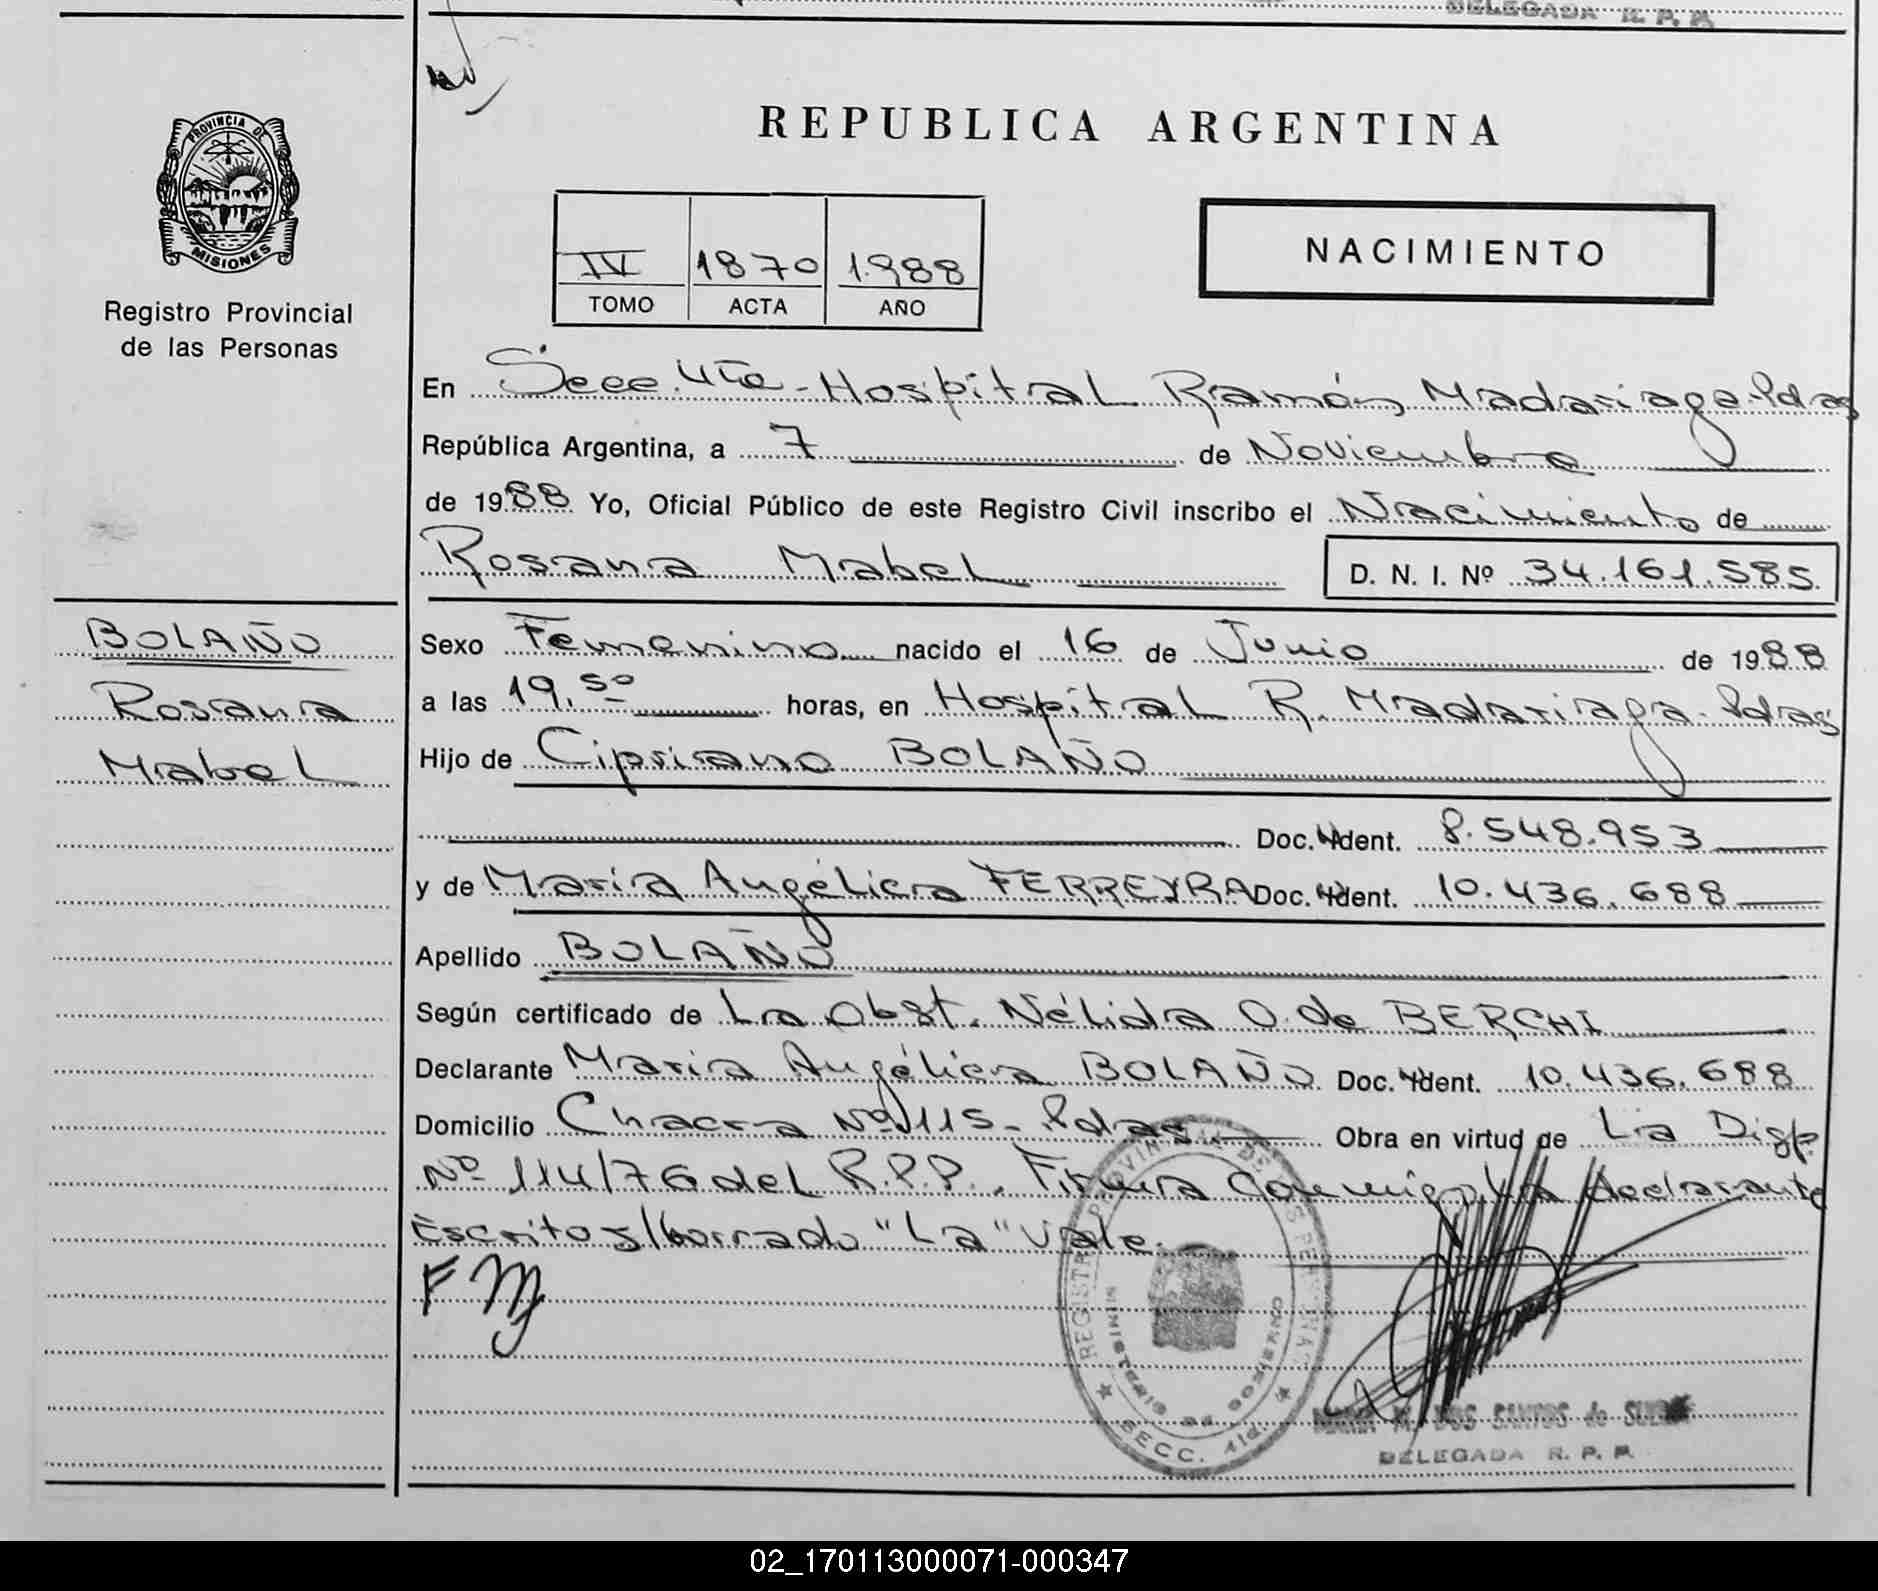 DELEGADA R. P. P.
PROVINCIA DE
MISIONES
Registro Provincial
de las Personas
REPUBLICA ARGENTINA
IV 1870 1988
TOMO ACTA AÑO
NACIMIENTO
En Secc. 4ta - Hospital Ramón Madariaga Pdas
República Argentina, a 7 de Noviembre
de 1988 Yo, Oficial Público de este Registro Civil inscribo el Nacimiento de
Rosana Mabel D. N. I. Nº 34.161.585.
BOLAÑO
Rosana
Mabel
Sexo Femenino nacido el 16 de Junio de 1988
a las 19,50 horas, en Hospital R. Madariaga - Pdas
Hijo de Cipriano BOLAÑO
Doc. Ident. 8.548.953
y de María Angélica FERREYRA Doc. Ident. 10.436.688
Apellido BOLAÑO
Según certificado de La Obst. Nélida O. de BERCHI
Declarante María Angélica BOLAÑO Doc. Ident. 10.436.688
Domicilio Chacra Nº 115 - Pdas. Obra en virtud de La Disp.
Nº 114/76 del R.P.P., Firma conmigo, la declarante
Escrito s/borrado "La" Vale.
REGISTRO PROVINCIAL DE LAS PERSONAS
MINISTERIO DE GOBIERNO
SECC. 4ta.
MARIA M. DOS SANTOS de
DELEGADA R. P. P.
02_170113000071-000347